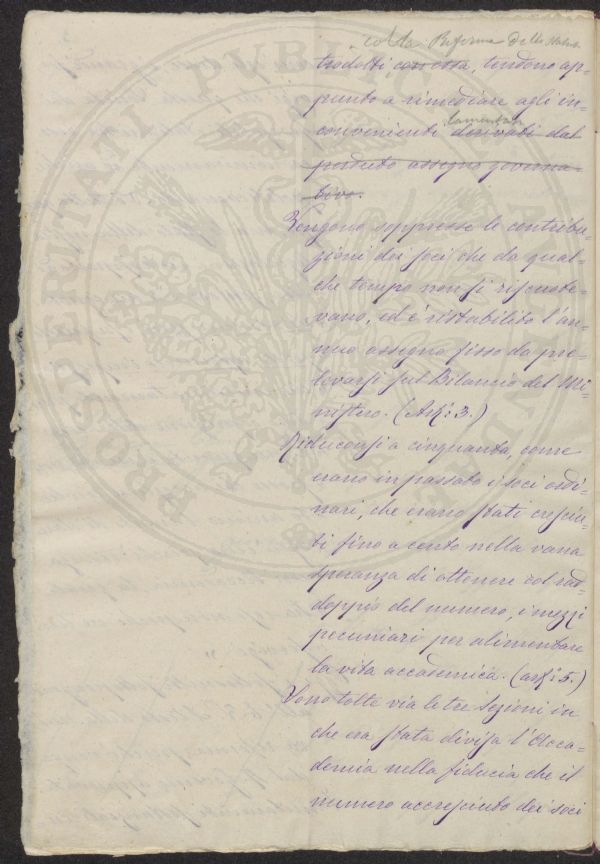 colla Riforma dello Statuto
trodotti, con essa, tendono ap-
punto a rimediare agli in-
lamentati
convenienti derivati dal
perduto assegno governa-
tivo.
Vengono soppresse le contribu-
zioni dei soci che da qual-
che tempo non si riscuote-
vano, ed è ristabilito l'an-
nuo assegno fisso da pre-
levarsi sul Bilancio del Mi-
nistero. (Art: 3.)
Riduconsi a cinquanta, come
erano in passato i soci ordi-
nari, che erano stati cresciu-
ti fino a cento nella vana
speranza di ottenere col rad-
doppio del numero, i mezzi
pecuniari per alimentare
la vita accademica. (art: 5.)
Sono tolte via le tre sezioni in
che era stata divisa l'Acca-
demia nella fiducia che il
numero accresciuto dei soci
PROSPERITATI PUBLICAE AUGENDAE